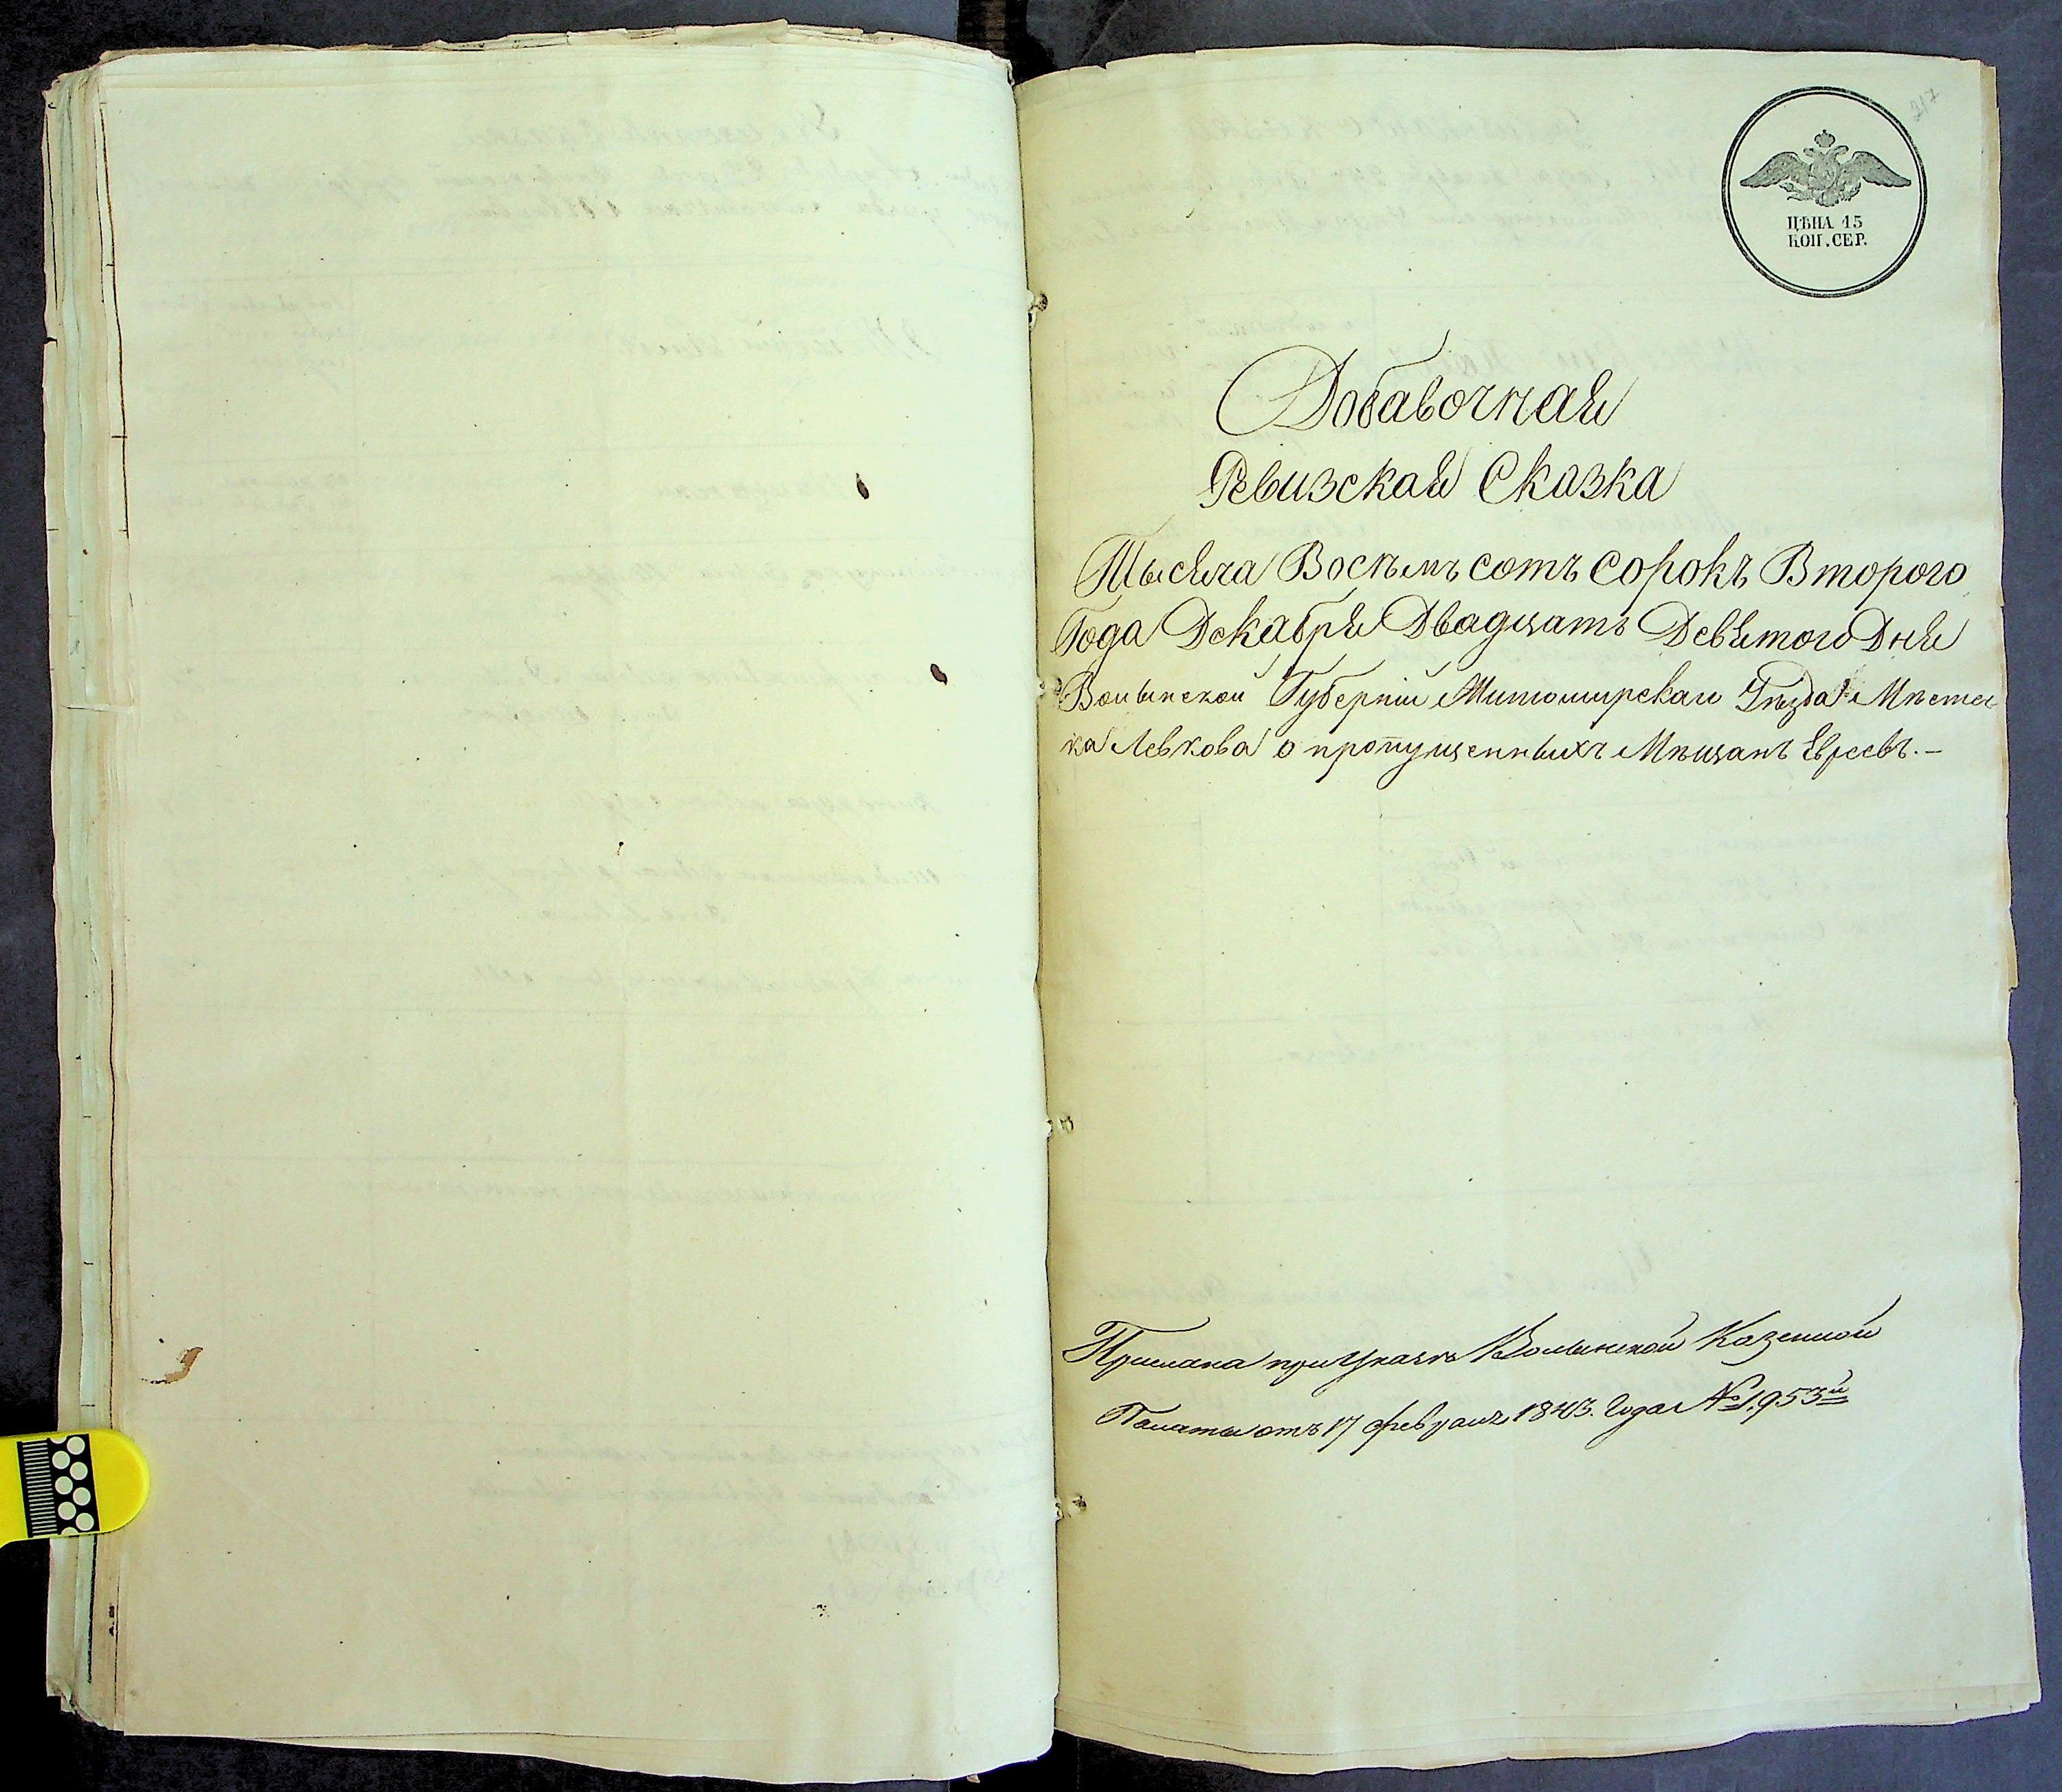 217
ЦѢНА 15
КОП. СЕР.
Добавочная
Ревизская Сказка
Тысяча Восѣмъ сотъ Сорокъ Второго
Года Декабря Двадцать Девятого Дня
Волынской Губерніи Житомирскаго Уѣзда Мѣстеч-
ка Левкова о пропущенныхъ Мѣщанъ Евреевъ.-
Прислана при Указѣ Волынской Казенной
Палаты отъ 17 февраля 1843. Года № 1,953й